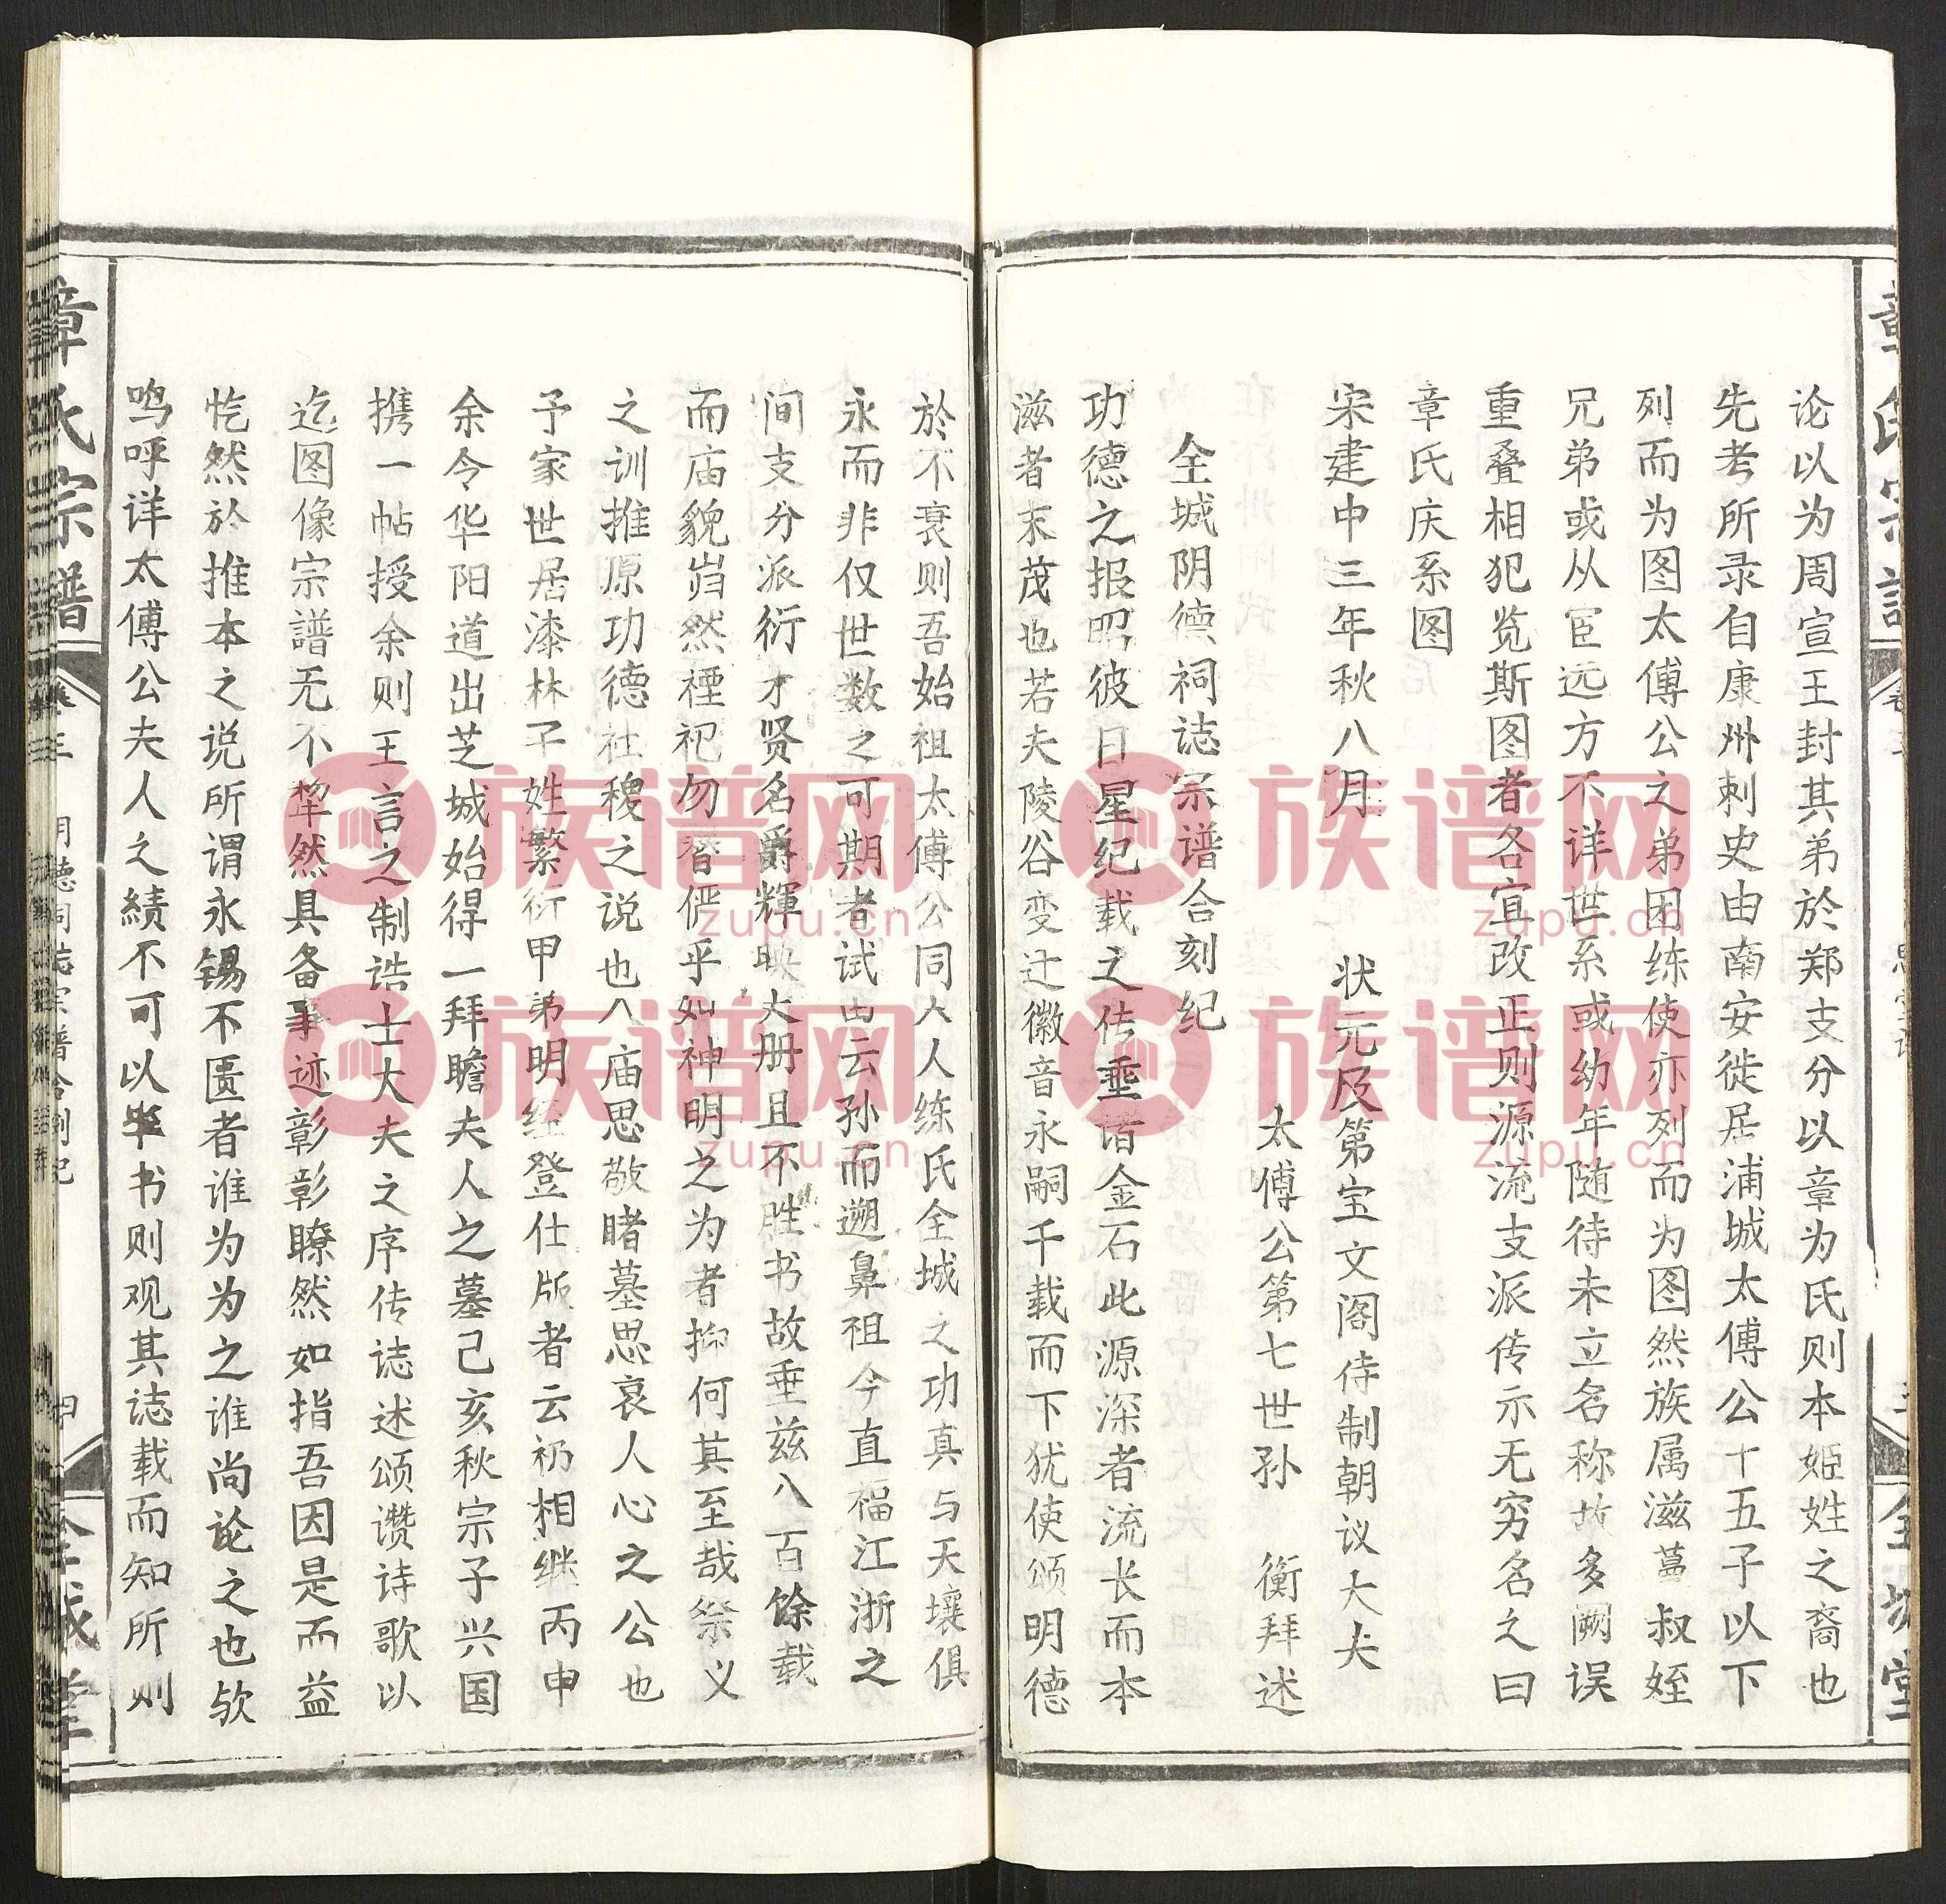 论以为周宣王封其弟於郑支分以章为氏则本姬姓之裔也
先考所录自康州刺史由南安徙居浦城太傅公十五子以下
列而为图太傅公之弟团练使亦列而为图然族属滋蔓叔姪
兄弟或从宦远方不详世系或幼年随待未立名称故多阙误
重叠相犯览斯图者各宜改正则源流支派传示无穷名之曰
章氏庆系图
宋建中三年秋八月 状元及第宝文阁待制朝议大夫
太傅公第七世孙 衡拜述
全城阴德祠誌宗谱合刻纪
功德之报昭彼日星纪载之传垂诸金石此源深者流长而本
滋者末茂也若夫陵谷变迁徽音永嗣千载而下犹使颂明德
於不衰则吾始祖太傅公同夫人练氏全城之功真与天壤俱
永而非仅世数之可期者试由云孙而遡鼻祖今直福江浙之
间支分派衍才贤名爵輝映大册且不胜书故垂兹八百馀载
而庙貌岿然禋祀勿替俨乎如神明之为者抑何其至哉祭义
之训推原功德社稷之说也入庙思敬睹墓思哀人心之公也
予家世居漆林子姓繁衍甲弟明经登仕版者云礽相继丙申
余令华阳道出芝城始得一拜瞻夫人之墓己亥秋宗子兴国
携一帖授余则王言之制诰士大夫之序传誌述颂讚诗歌以
迄图像宗譜无不犂然具备事迹彰彰瞭然如指吾因是而益
恍然於推本之说所谓永锡不匮者谁为为之谁尚论之也欤
鸣呼详太傅公夫人之績不可以单书则观其誌载而知所则
章氏宗譜 卷三 明德祠誌宗譜合刻纪 四 全城堂
族谱网
zupu.cn
族谱网
zupu.cn
族谱网
zupu.cn
族谱网
zupu.cn